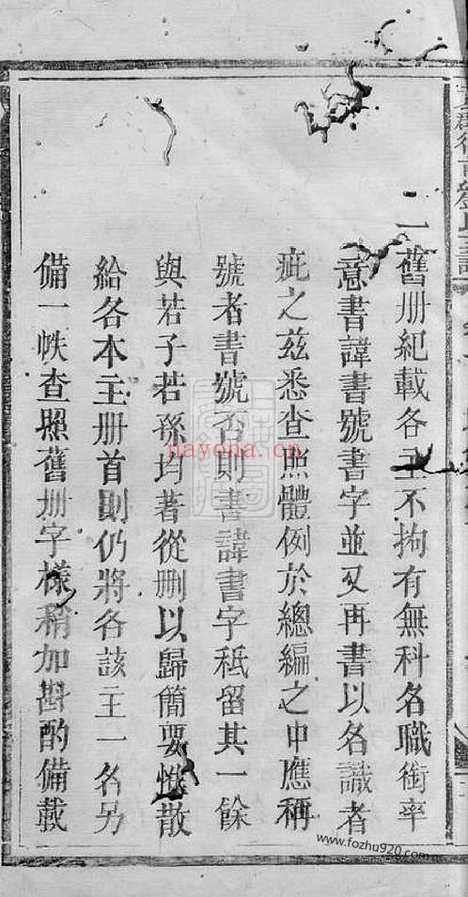 一舊册紀載各主不拘有無科名職銜率
意書諱書號書字並又再書以名識者
疵之茲悉查照體例於總編之中應稱
號者書號否則書諱書字秪留其一餘
與若子若孫均著從刪以歸簡要惟散
給各本主册首則仍將各該主一名另
備一帙查照舊册字樣稍加斟酌備載
nayona.cn
www.fozhu920.com